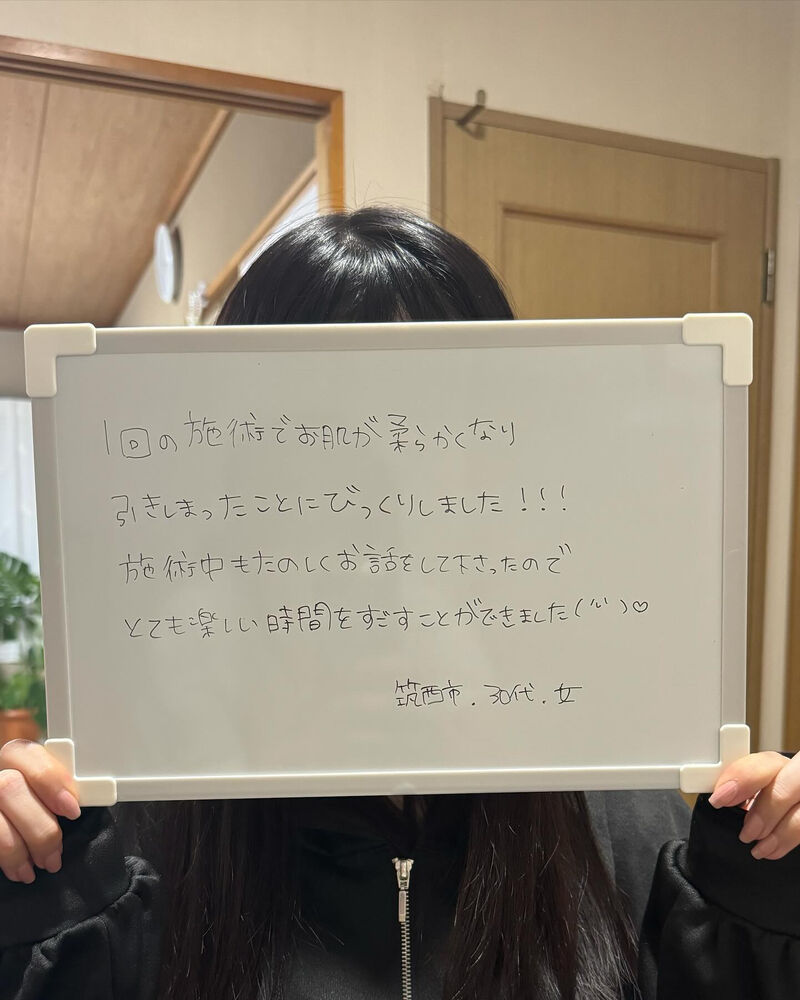 1回の施術でお肌が柔らかくなり
引きしまったことにびっくりしました!!!
施術中もたのしくお話をして下さったので
とても楽しい時間をすごすことができました(^^)♡
筑西市.30代.女